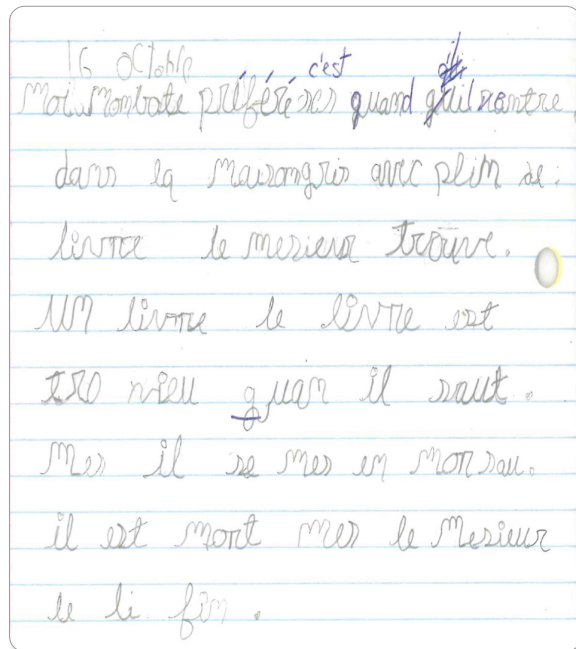 16 Octobre
c'est il
Moi Mombate préféré ses quand quil rentre
dans la maisongris avec plin de
livre le mesieur trouve.
UN livre le livre est
tro vieu quan il saut.
mes il se mes en morsau.
il est mort mes le Mesieur
le li fin.